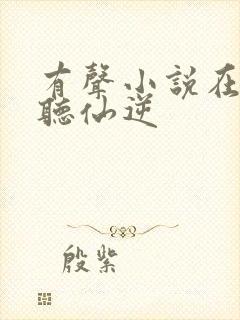 有聲小說在
聽仙逆
殷紫